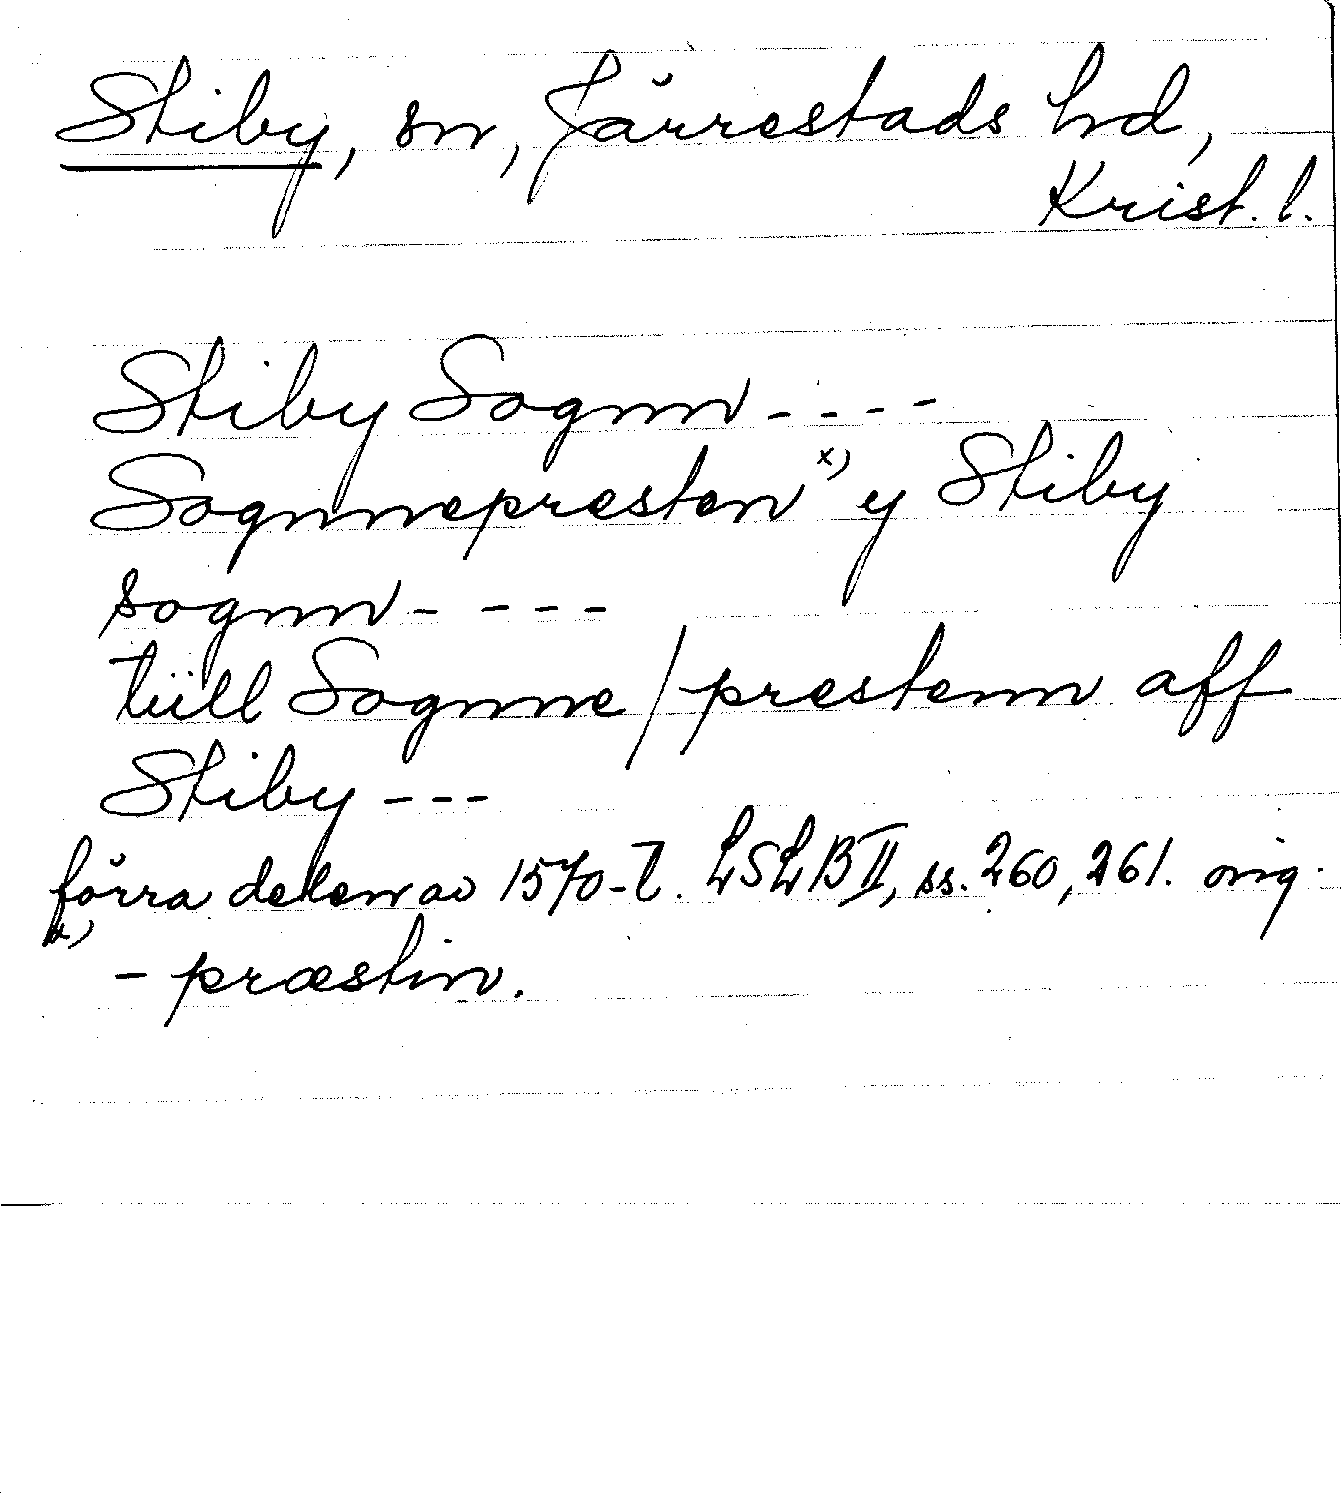 Stiby, sn, Järrestads hd,
Krist. l.
Stiby Sognn - - - -
Sognnepresten x) y Stiby
sognn - - - -
tiill Sognne / prestenn aff
Stiby - - -
förra delen av 1570-t. LSLB II, ss. 260, 261. orig.
x)
- præstin.